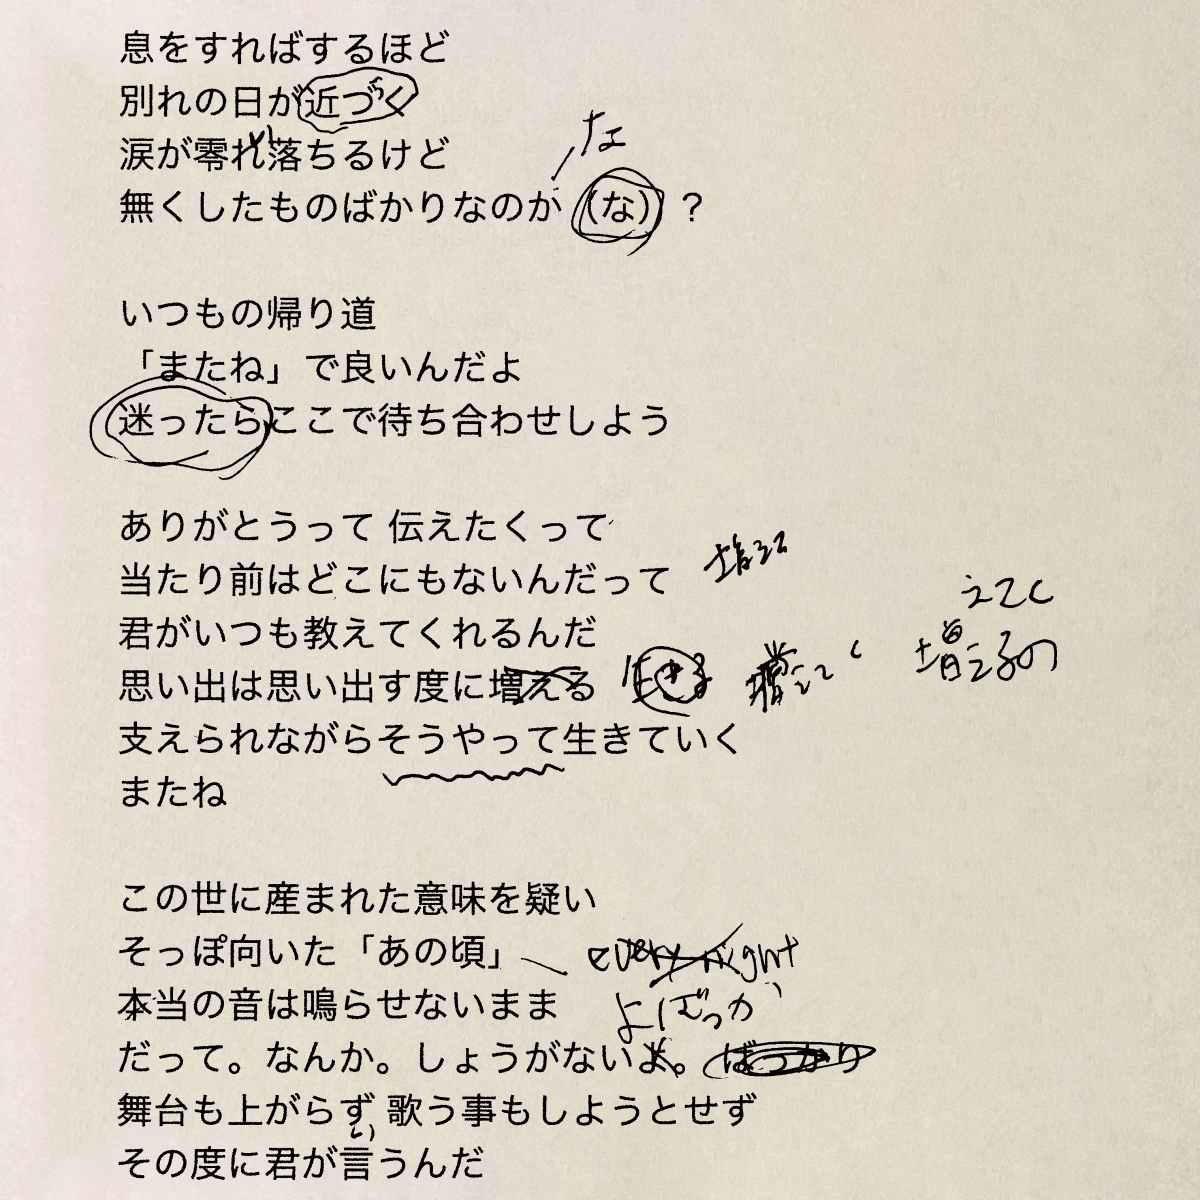 息をすればするほど
別れの日が近づく
涙が零れ落ちるけど
な
無くしたものばかりなのか（な）？
いつもの帰り道
「またね」で良いんだよ
迷ったらここで待ち合わせしよう
ありがとうって 伝えたくって
当たり前はどこにもないんだって 増えて
君がいつも教えてくれるんだ
えてく
思い出は思い出す度に増える 生きる 増えてく 増えるの
支えられながらそうやって生きていく
またね
この世に産まれた意味を疑い
そっぽ向いた「あの頃」 every night
本当の音は鳴らせないまま よばっか
だって。なんか。しょうがないよ。 ばっかり
舞台も上がらず 歌う事もしようとせず
い
その度に君が言うんだ